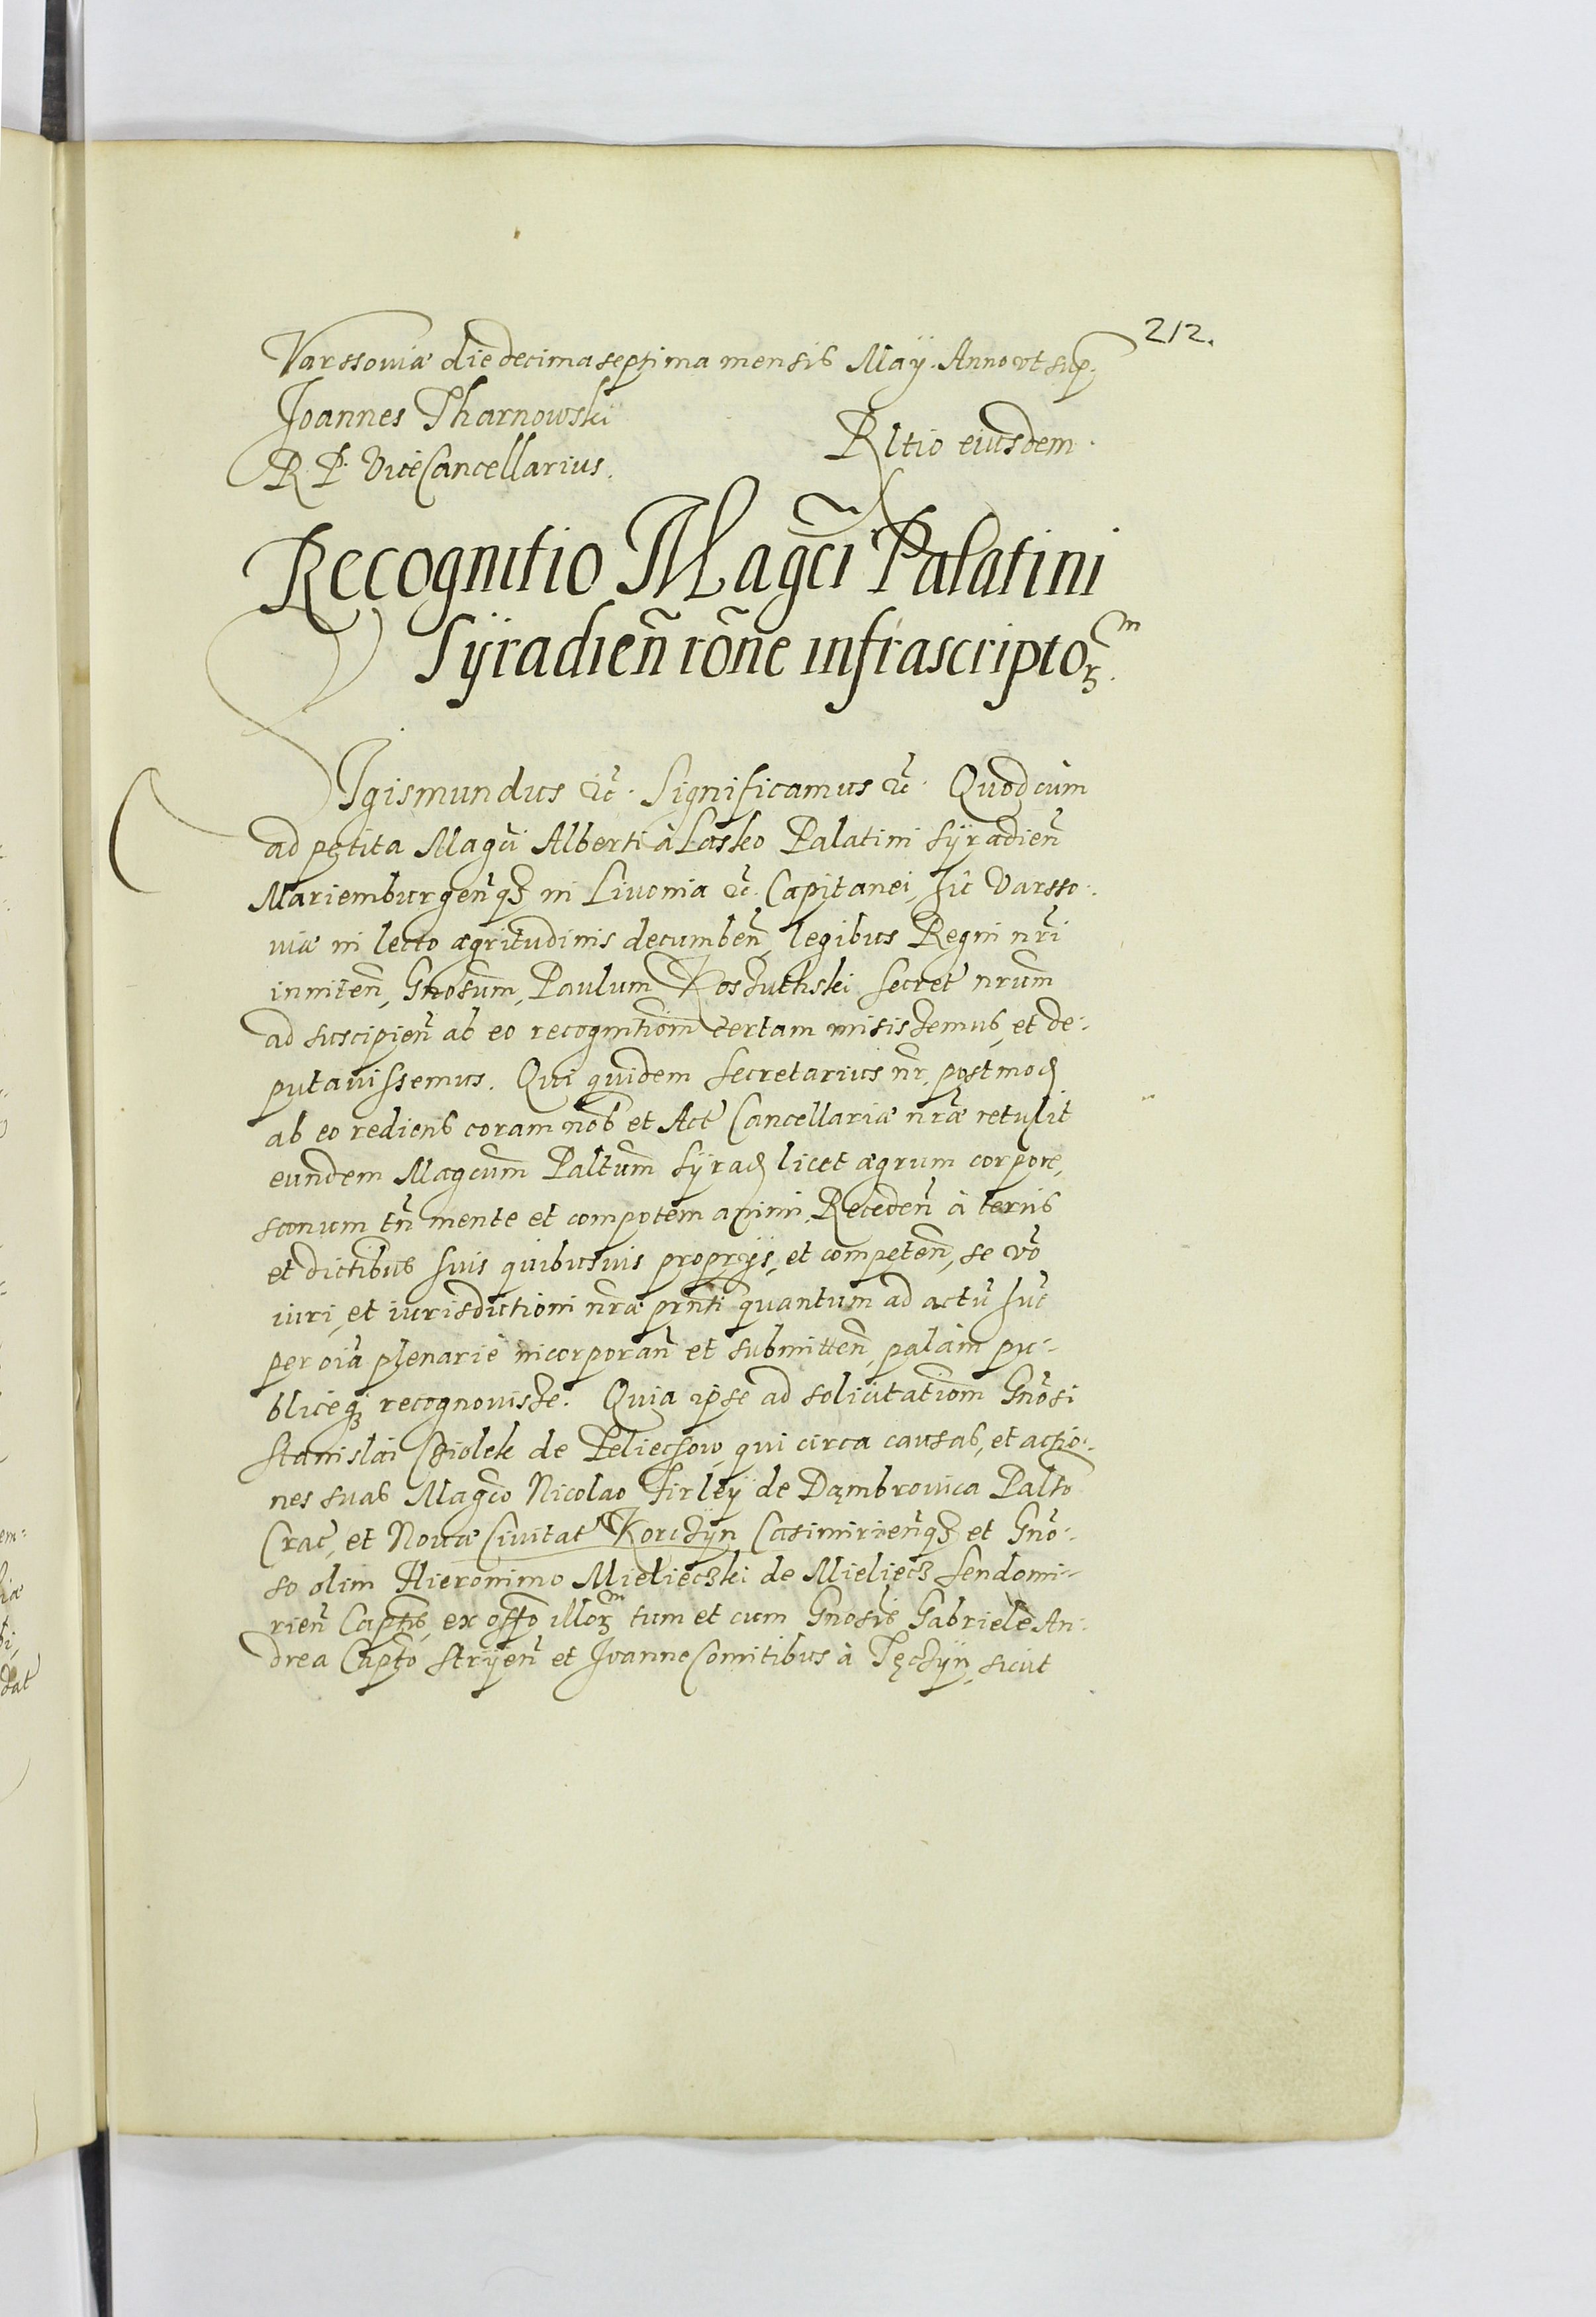 212.
Varssouiæ die decima septima mensis Maÿ. Anno vt sup.
Joannes Tharnowski
R. P. ViceCancellarius.
Rltio eiusdem.
Recognitio Magc̃i Palatini
Sÿradień rõne infrascriptoꝝ.
Sigismundus &c̃. Significamus &c̃. Quod cùm
ad petita Magc̃i Alberti à Lasko Palatini Sÿradień
Mariemburgeñqꝫ in Liuonia &c̃. Capitanei, hîc Varsso-
uiæ in lecto ægritudinis decumbeñ, legibus Regni nr̃i
inniteñ, Gñosum, Paulum Koszuthski Secret nrũm
ad suscipieñ ab eo recognitionẽ certam misissemus, et de-
putauissemus. Qui quidem Secretarius nr̃, postmod
ab eo rediens coram nob̃ et Act Cancellariæ nr̃æ retulit
eundem Magcũm Paltũm Sÿrad licet ægrum corpore,
sanum tñ mente et compotem animi, Recedeñ à terris
et dictibus suis quibusuis proprÿs, et competeñ, se võ
iuri, et iurisdictioni nr̃æ prñti quantum ad actũ huc
per oĩa plenariè incorporañ et submitteñ, palàm pu-
bliceqꝫ recognouisse. Quia ipse ad solicitationẽ Gñosi
Stanislai Cziolek de Zeliechow, qui circa causas, et actio-
nes suas Magc̃o Nicolao Firleÿ de Dąmbrouica Paltõ
Crac, et Nouæ Ciuitat Korczÿn Casimirieñqꝫ et Gñõ-
so olim Hieronimo Mielieczki de Mieliecz Sendomi-
rieñ Captĩs, ex offo illoꝝ tum et cum Gñosis Gabriele An-
drea Captõ Strÿeñ et Joanne Comitibus à Tęczÿn, sicut